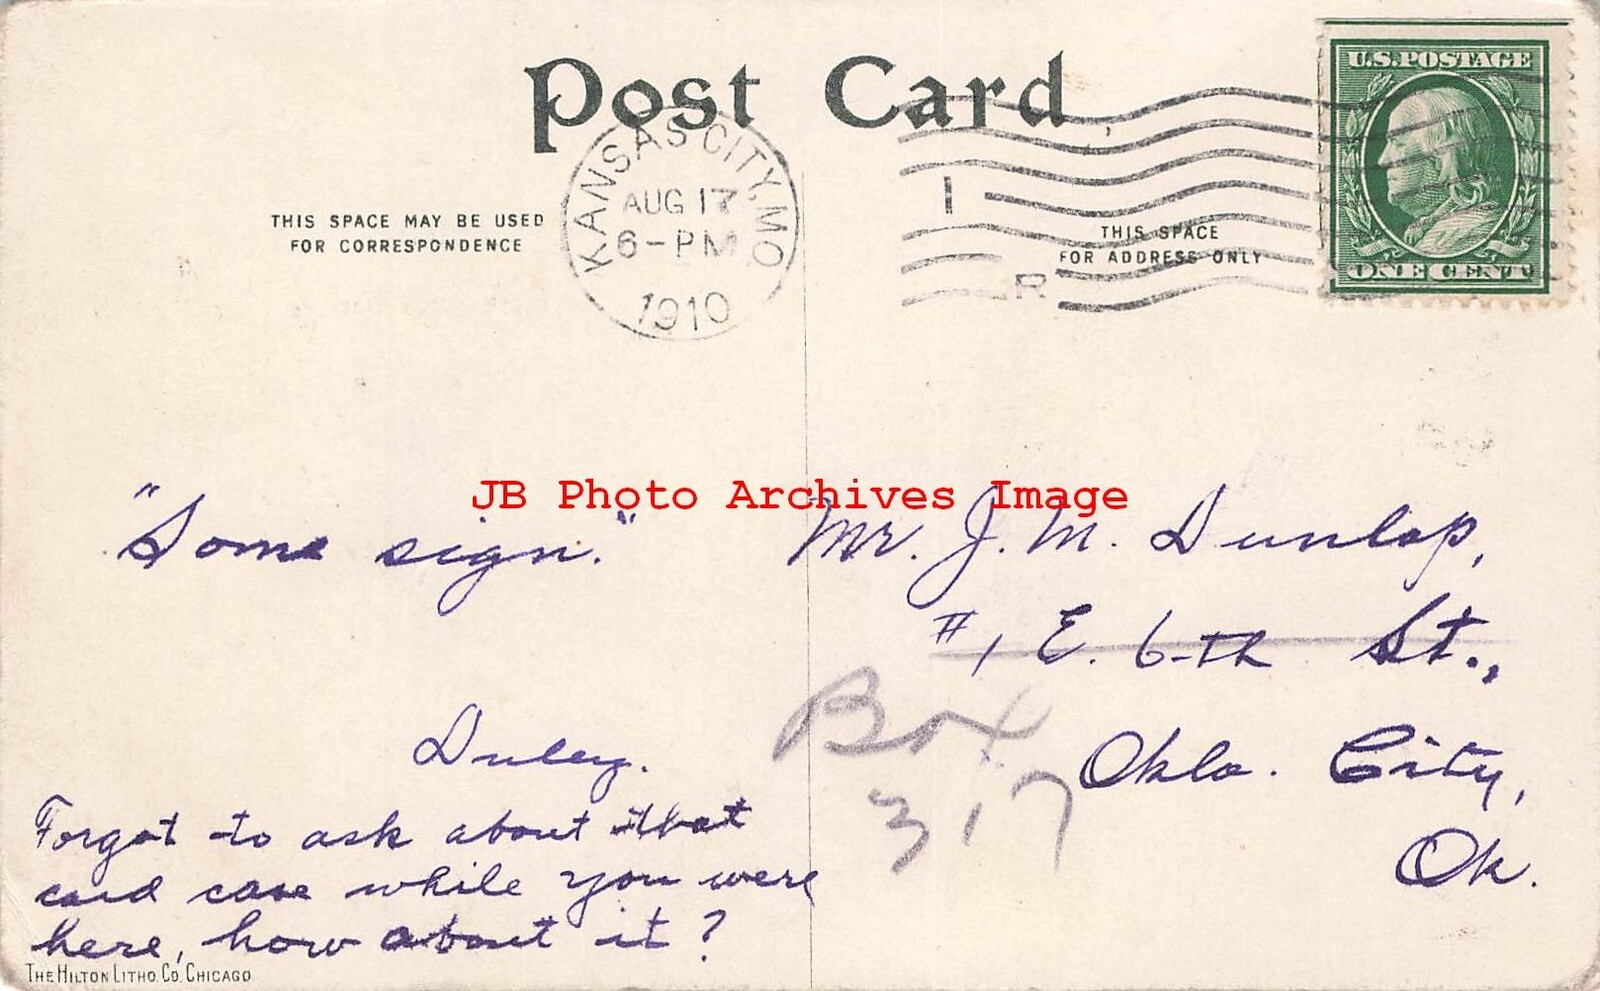 Post Card
U.S.POSTAGE
ONE CENT
KANSAS CITY, MO.
AUG 17
6-PM
1910
I
R
THIS SPACE MAY BE USED
FOR CORRESPONDENCE
THIS SPACE
FOR ADDRESS ONLY
JB Photo Archives Image
"Some sign."
Duley.
Forgot to ask about that
card case while you were
here, how about it?
THE HILTON LITHO. CO. CHICAGO
Mr. J. M. Dunlap,
#1 E. 6-th St.,
Box
317
Okla. City,
Ok.